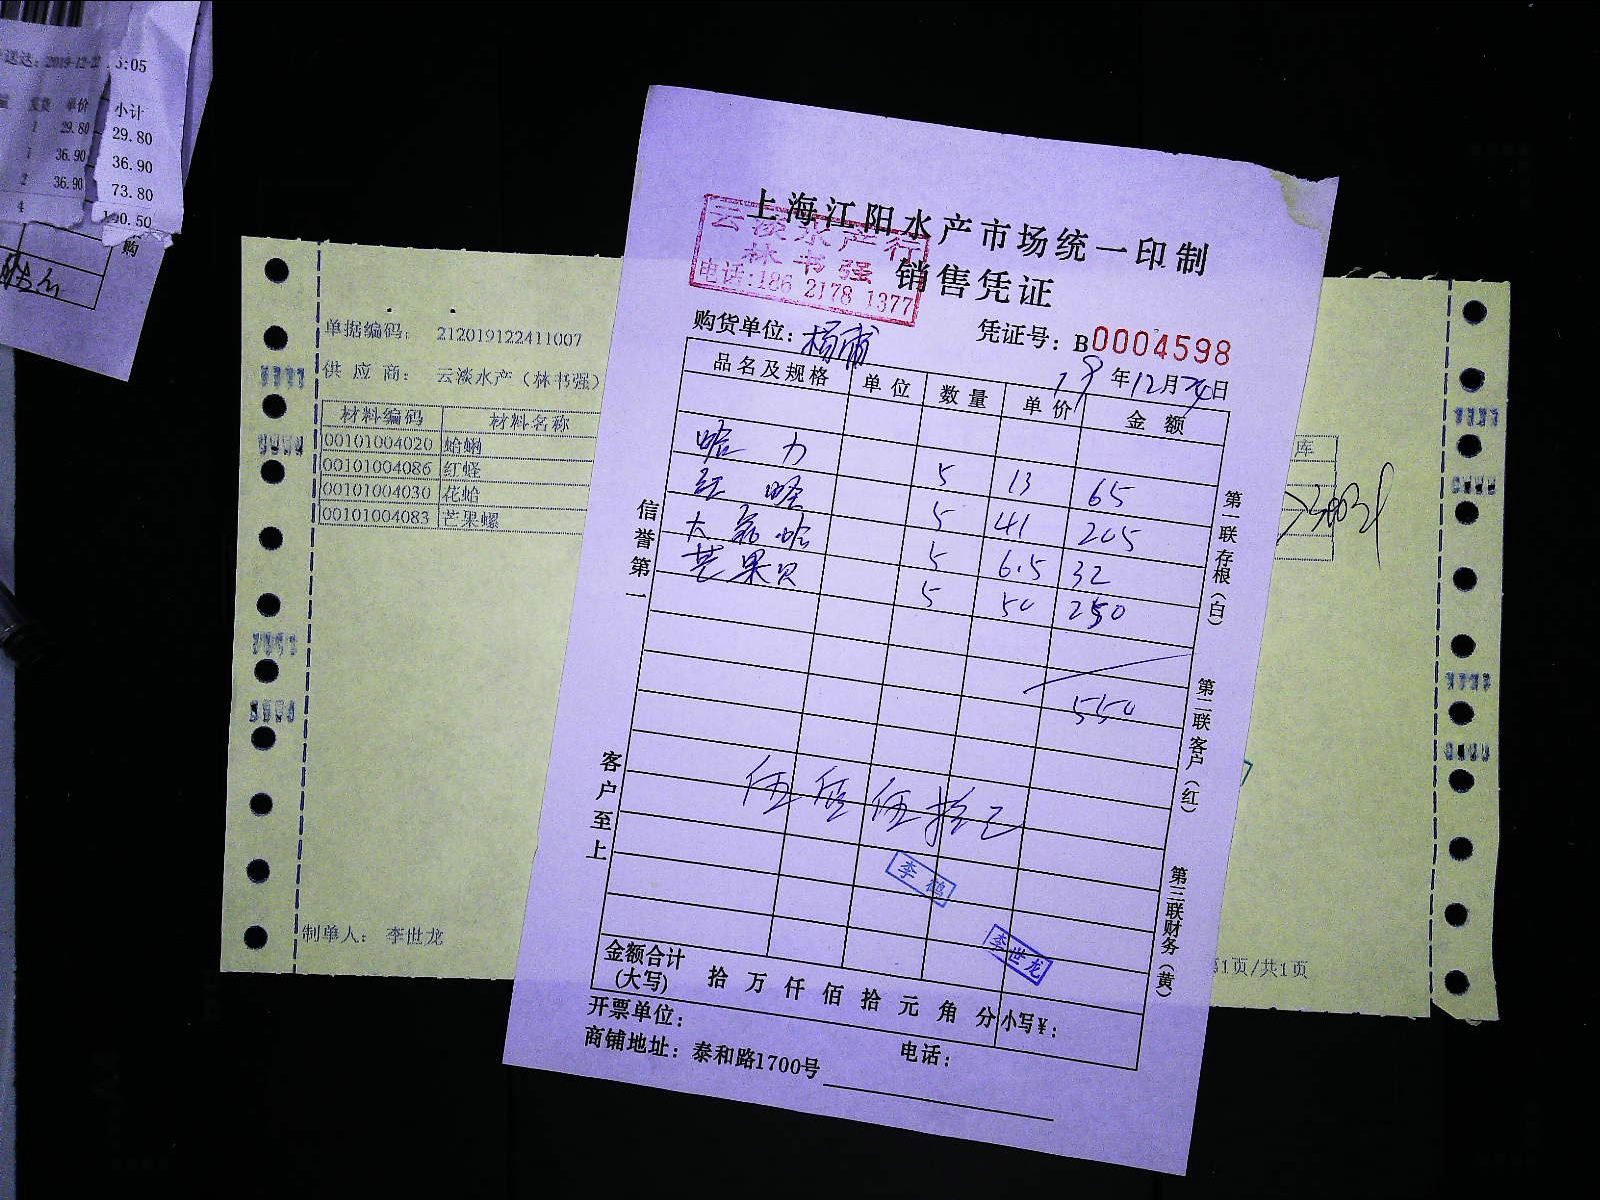 送达：2019-12-2 5:05
发货 单价 小计
1 29.80 29.80
36.90 36.90
2 36.90 73.80
4 140.50
购
单据编码： 212019122411007
供应商： 云淡水产（林书强）
材料编码 材料名称
00101004020 蛤蜊
00101004086 红蛏
00101004030 花蛤
00101004083 芒果螺
制单人： 李世龙
库
第1页/共1页
上海江阳水产市场统一印制
销售凭证
云淡水产行
林书强
电话:186 2178 1377
购货单位：杨浦
凭证号：B0004598
19年12月24日
品名及规格 单位 数量 单价 金额
哈力 5 13 65
红蛏 5 41 205
大花哈 5 6.5 32
芒果贝 5 50 250
550
伍佰伍拾元
李鹤
李世龙
金额合计(大写) 拾万仟佰拾元角分 小写¥：
开票单位：
电话：
商铺地址：泰和路1700号
信誉第一
客户至上
第一联存根（白）
第二联客户（红）
第三联财务（黄）